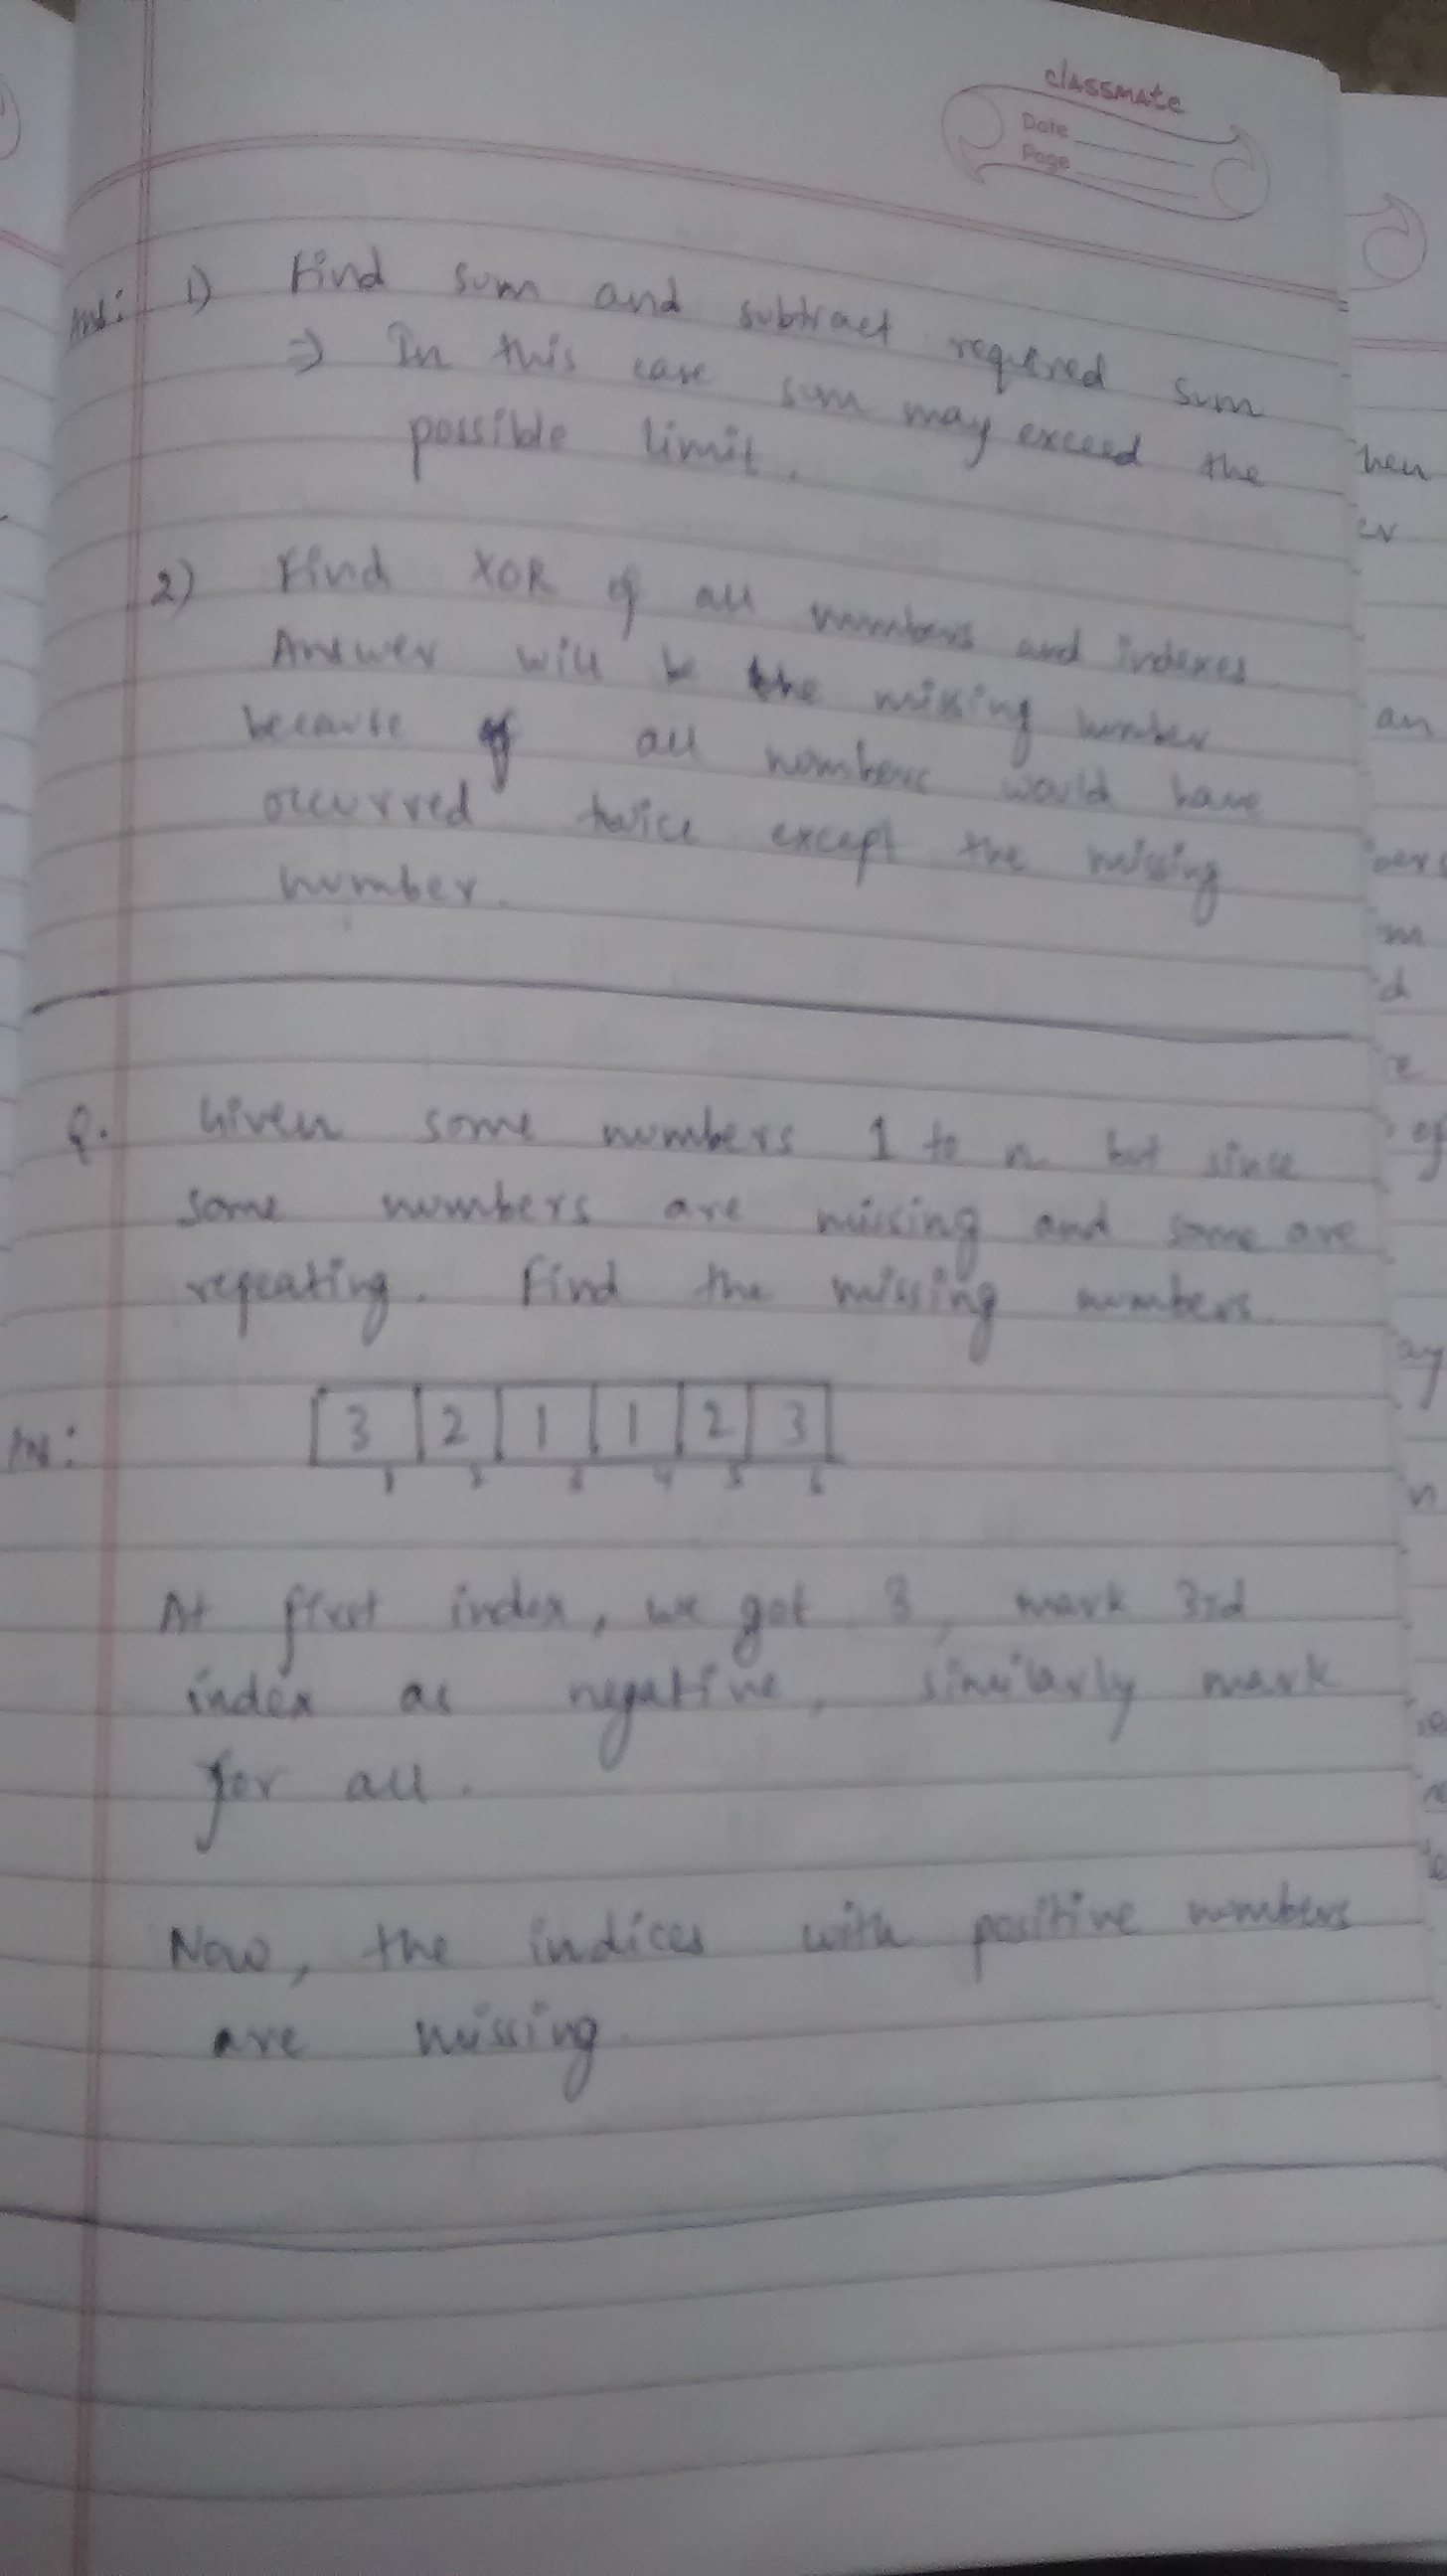 classmate
Date
Page
Ans: 1) Find sum and subtract required sum
⇒ In this case sum may exceed the
possible limit.
2) Find XOR of all numbers and indexes
Answer will be the missing number
because all numbers would have
occurred twice except the missing
number.
Q. Given some numbers 1 to n but since
some numbers are missing and some are
repeating. Find the missing numbers.
Ans: 3 2 1 1 2 3
1 2 3 4 5 6
At first index, we got 3, mark 3rd
index as negative, similarly mark
for all.
Now, the indices with positive numbers
are missing.